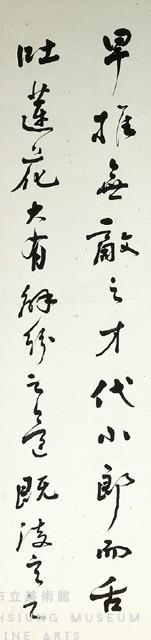 早推無敵之才代小郎而舌
吐蓮花大有解紛之道既陵之不
市立美術館
HSIUNG MUSEUM
FINE ARTS